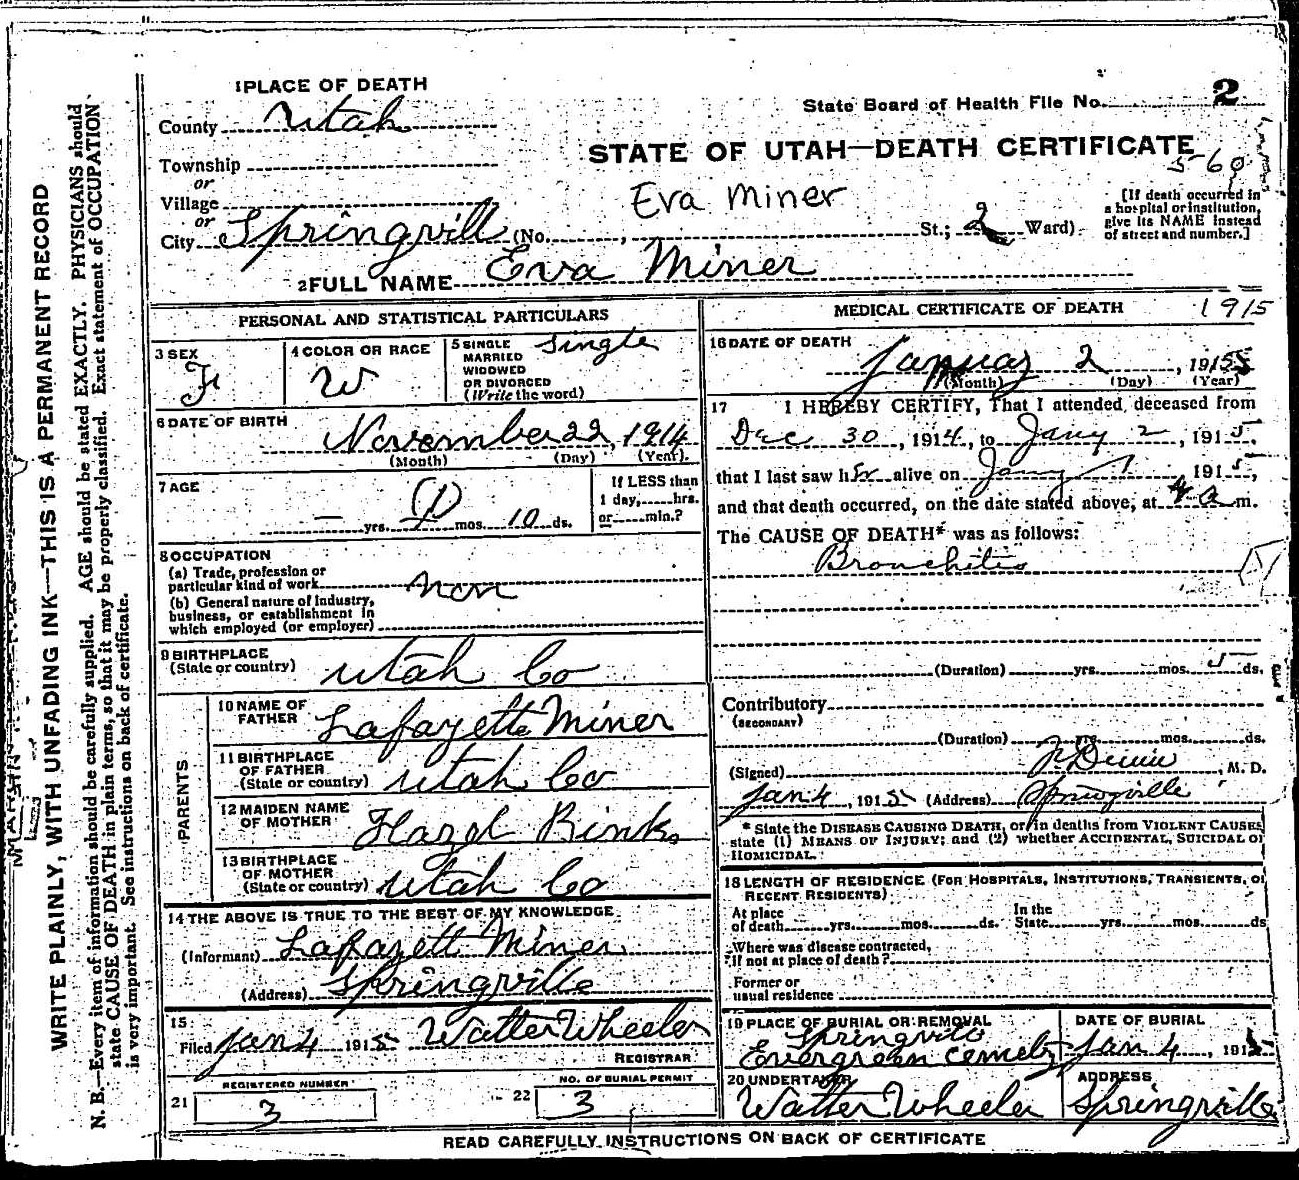 1 PLACE OF DEATH
State Board of Health File No. 2
County Utah
STATE OF UTAH—DEATH CERTIFICATE
Township
5-60
or
Village
Eva Miner
[If death occurred in a hospital or institution, give its NAME instead of street and number.]
or
City Springvill (No. , St.; 2 Ward)
2 FULL NAME Eva Miner
PERSONAL AND STATISTICAL PARTICULARS
3 SEX F
4 COLOR OR RACE W
5 SINGLE MARRIED WIDOWED OR DIVORCED (Write the word) Single
6 DATE OF BIRTH November 22, 1914
(Month) (Day) (Year).
7 AGE — yrs. 1 mos. 10 ds.
If LESS than 1 day, hrs. or min.?
8 OCCUPATION
(a) Trade, profession or particular kind of work non
(b) General nature of industry, business, or establishment in which employed (or employer)
9 BIRTHPLACE (State or country) Utah Co
PARENTS
10 NAME OF FATHER Lafayette Miner
11 BIRTHPLACE OF FATHER (State or country) Utah Co
12 MAIDEN NAME OF MOTHER Hazel Binks
13 BIRTHPLACE OF MOTHER (State or country) Utah Co
14 THE ABOVE IS TRUE TO THE BEST OF MY KNOWLEDGE
(Informant) Lafayett Miner
(Address) Springville
15
Filed Jan 4 1915 Walter Wheeler
REGISTRAR
REGISTERED NUMBER
21 3
NO. OF BURIAL PERMIT
22 3
MEDICAL CERTIFICATE OF DEATH 1915
16 DATE OF DEATH
January 2, 1915
(Month) (Day) (Year)
17 I HEREBY CERTIFY, That I attended deceased from
Dec 30, 1914, to Jany 2, 1915,
that I last saw her alive on Jany 1 1915,
and that death occurred, on the date stated above, at 4 a m.
The CAUSE OF DEATH* was as follows:
Bronchitis
(Duration) yrs. mos. 5 ds.
Contributory
(SECONDARY)
(Duration) yrs. mos. ds.
(Signed) , M. D.
Jan 4, 1915 (Address) Springville
* State the DISEASE CAUSING DEATH, or in deaths from VIOLENT CAUSES, state (1) MEANS OF INJURY; and (2) whether ACCIDENTAL, SUICIDAL or HOMICIDAL.
18 LENGTH OF RESIDENCE (FOR HOSPITALS, INSTITUTIONS, TRANSIENTS, OR RECENT RESIDENTS)
At place of death yrs. mos. ds. In the State yrs. mos. ds
Where was disease contracted, if not at place of death?
Former or usual residence
19 PLACE OF BURIAL OR REMOVAL
Springville
Evergreen Cemety
DATE OF BURIAL
Jan 4, 1915
20 UNDERTAKER
Walter Wheeler
ADDRESS
Springville
READ CAREFULLY INSTRUCTIONS ON BACK OF CERTIFICATE
WRITE PLAINLY, WITH UNFADING INK—THIS IS A PERMANENT RECORD
N. B.—Every item of information should be carefully supplied. AGE should be stated EXACTLY. PHYSICIANS should
state CAUSE OF DEATH in plain terms, so that it may be properly classified. Exact statement of OCCUPATION
is very important. See instructions on back of certificate.